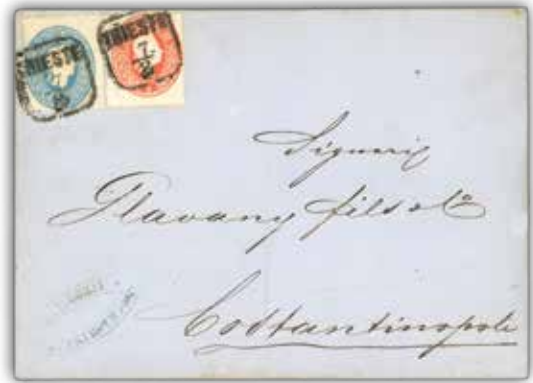 TRIESTE
7/2
TRIESTE
7
Signori
Glavany fils & Co
Costantinopoli